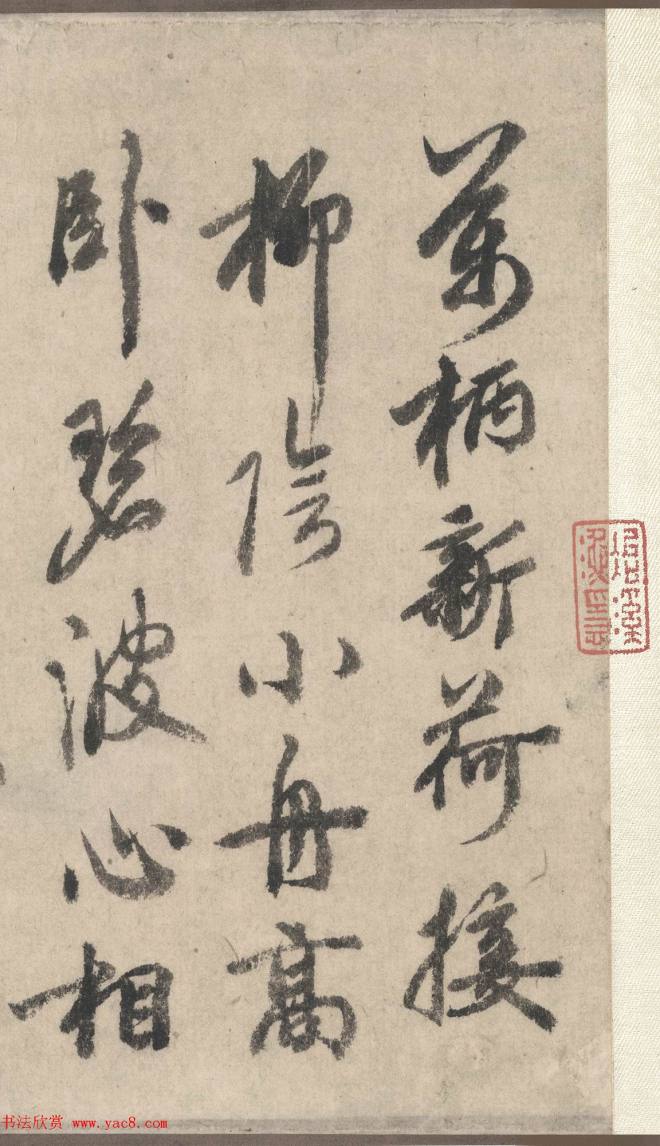 萬柄新荷接
柳陰小舟高
卧碧波心相
书法欣赏 www.yac8.com